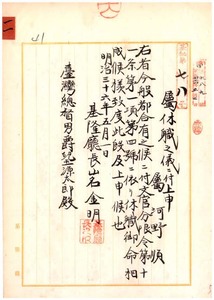 七八
屬休職之儀ニ付上申
屬 河野 順
右者今般都合有之候ニ付文官分限令第十
一条第一項第四號ニ依リ休職御命相
成候樣致度此段及上申候也
明治三十六年五月一日
基隆廳長 山名金明
臺灣總督男爵兒玉源太郎殿